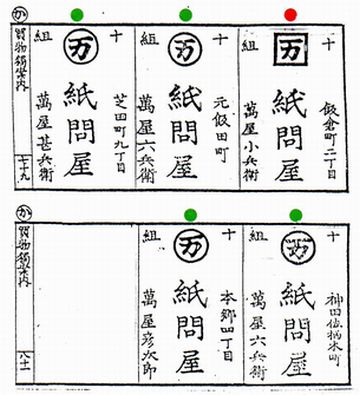 十
飯倉町二丁目
万
紙問屋
組
萬屋小兵衛
十
元飯田町
万
紙問屋
組
萬屋六兵衛
十
芝田町九丁目
万
紙問屋
組
萬屋甚兵衛
か
買物獨案内
七十九
十
神田佐柄木町
紙問屋
組
萬屋六兵衛
十
本郷四丁目
万
紙問屋
組
萬屋
か
買物獨案内
八十一